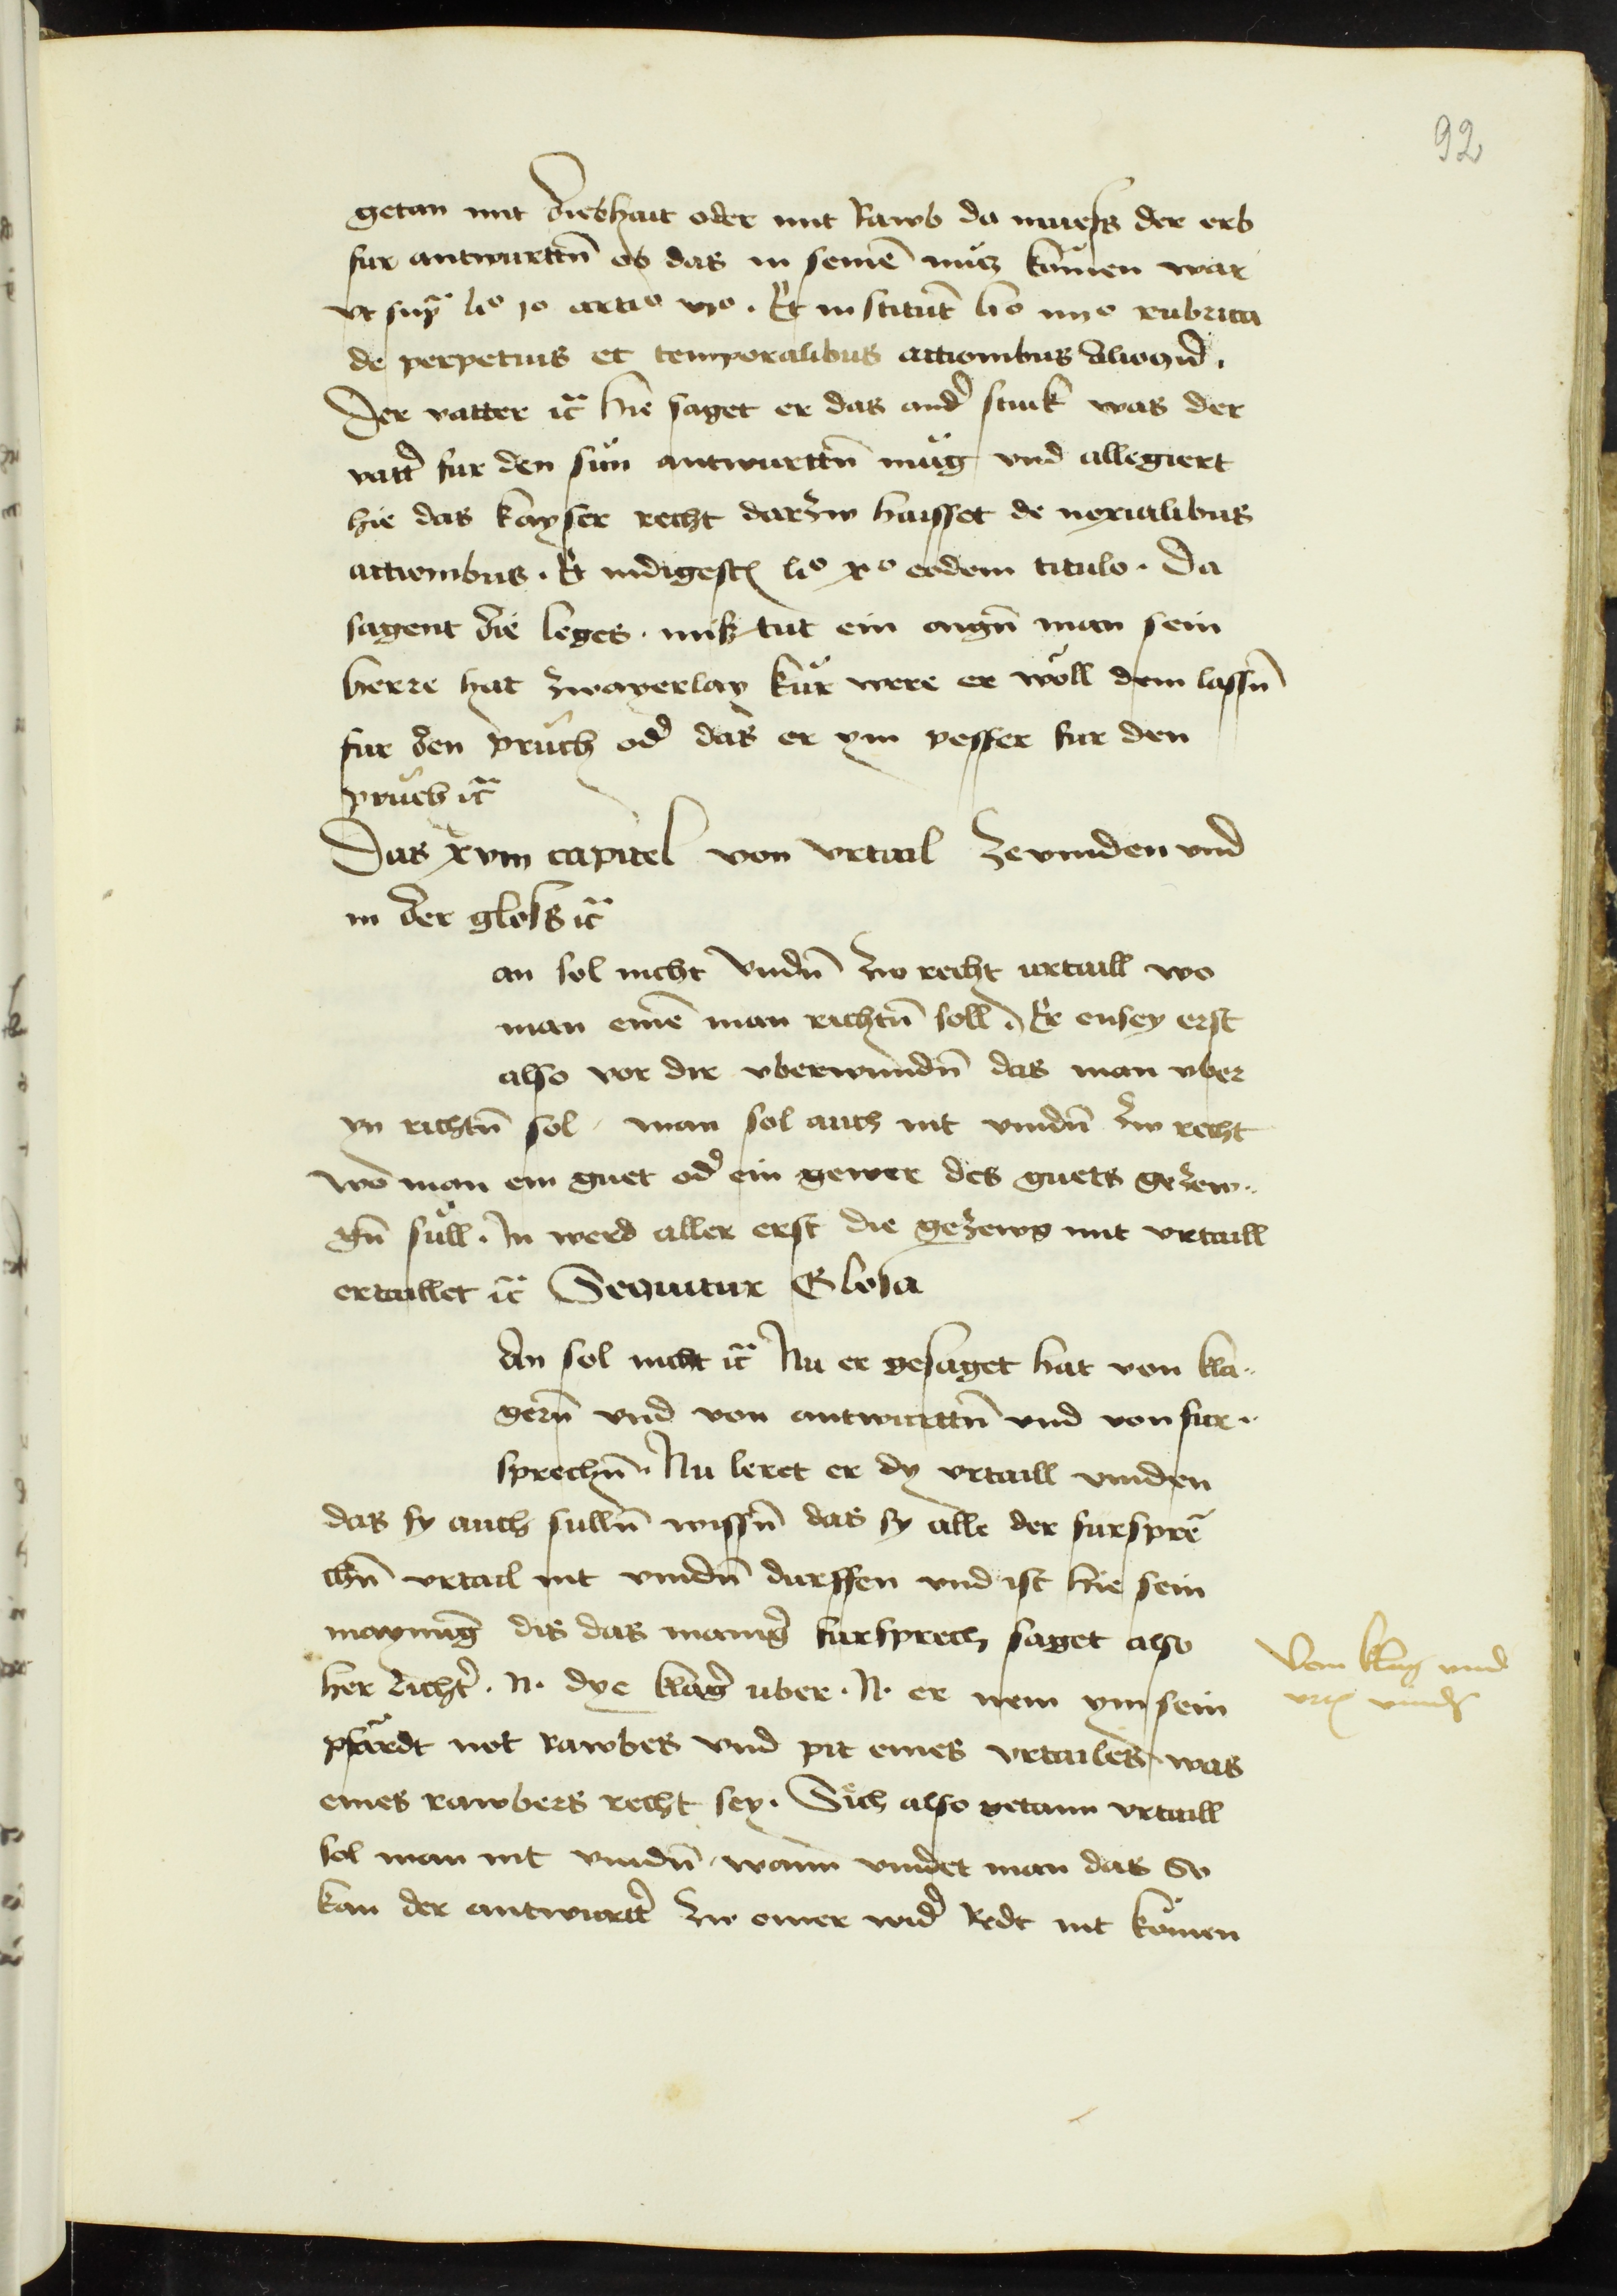 92
getan mit diebhait oder mit Rawb da muess der erb
fur antwurttn̄ ob das in seinē nutz kōmen war
vt supͣ liᵒ jᵒ articᵒ vjᵒ. Et institut̄ liᵒ iiijᵒ rubrica
de perpetuis et temporalibus actionibus
Der vatter ꝛc̄ hie saget er das and̾ stuk was der
vatt̾ fur den sun antwurttn̄ mug vnd allegiert
hie das kayser recht darzw haisset de noxialibus
actionibus. Et indigestꝭ liᵒ xᵒ eodem titulo. Da
sagent die leges. miss tut ein aygn̄ man sein
herre hat zwayerlay kur were er woll dem lassn̄
fur den pruch od̾ das er ym pesser fur den
pruch ꝛc̄
Das xviij capitel von vrtail ze vinden vnd
in der gloss ꝛc̄
an sol nicht vindn̄ zw recht urtaill wo
man einē man richtn̄ soll. Er ensey erst
also vor dir vberwundn̄ das man vber
yn richtn̄ sol. man sol auch nit vindn̄ zw recht
wo man ein guet od̾ ein gewer des guets gezew..
gn̄ sull. In werd aller erst die gezewg mit vrtaill
ertaillet ꝛc̄ Sequitur Glosa
An sol nicht ꝛc̄ Nu er gesaget hat von kla..
gern̄ vnd von antwurttn̄ vnd von fur..
sprechn̄. Nu leret er dy vrtaill vinden
das sy auch sulln̄ wissn̄ das sy alle der fursprē
chn̄ vrtail nit vindn̄ durffen vnd ist hie sein
maynūg dis das manig̾ fursprech saget also
her richt̾. N. dye klag̾ uber. N. er nem ym sein
pfärdt not rawbes vnd pit eines vrtailes was
eines rawbers recht sey. Sich also getann vrtaill
sol man nit vindn̄. wann vindet man das So
kan der antwurtt̾ zw einer wid̾ Redt nit kömen
Von klag vnd
vrtꝭ vindn̄